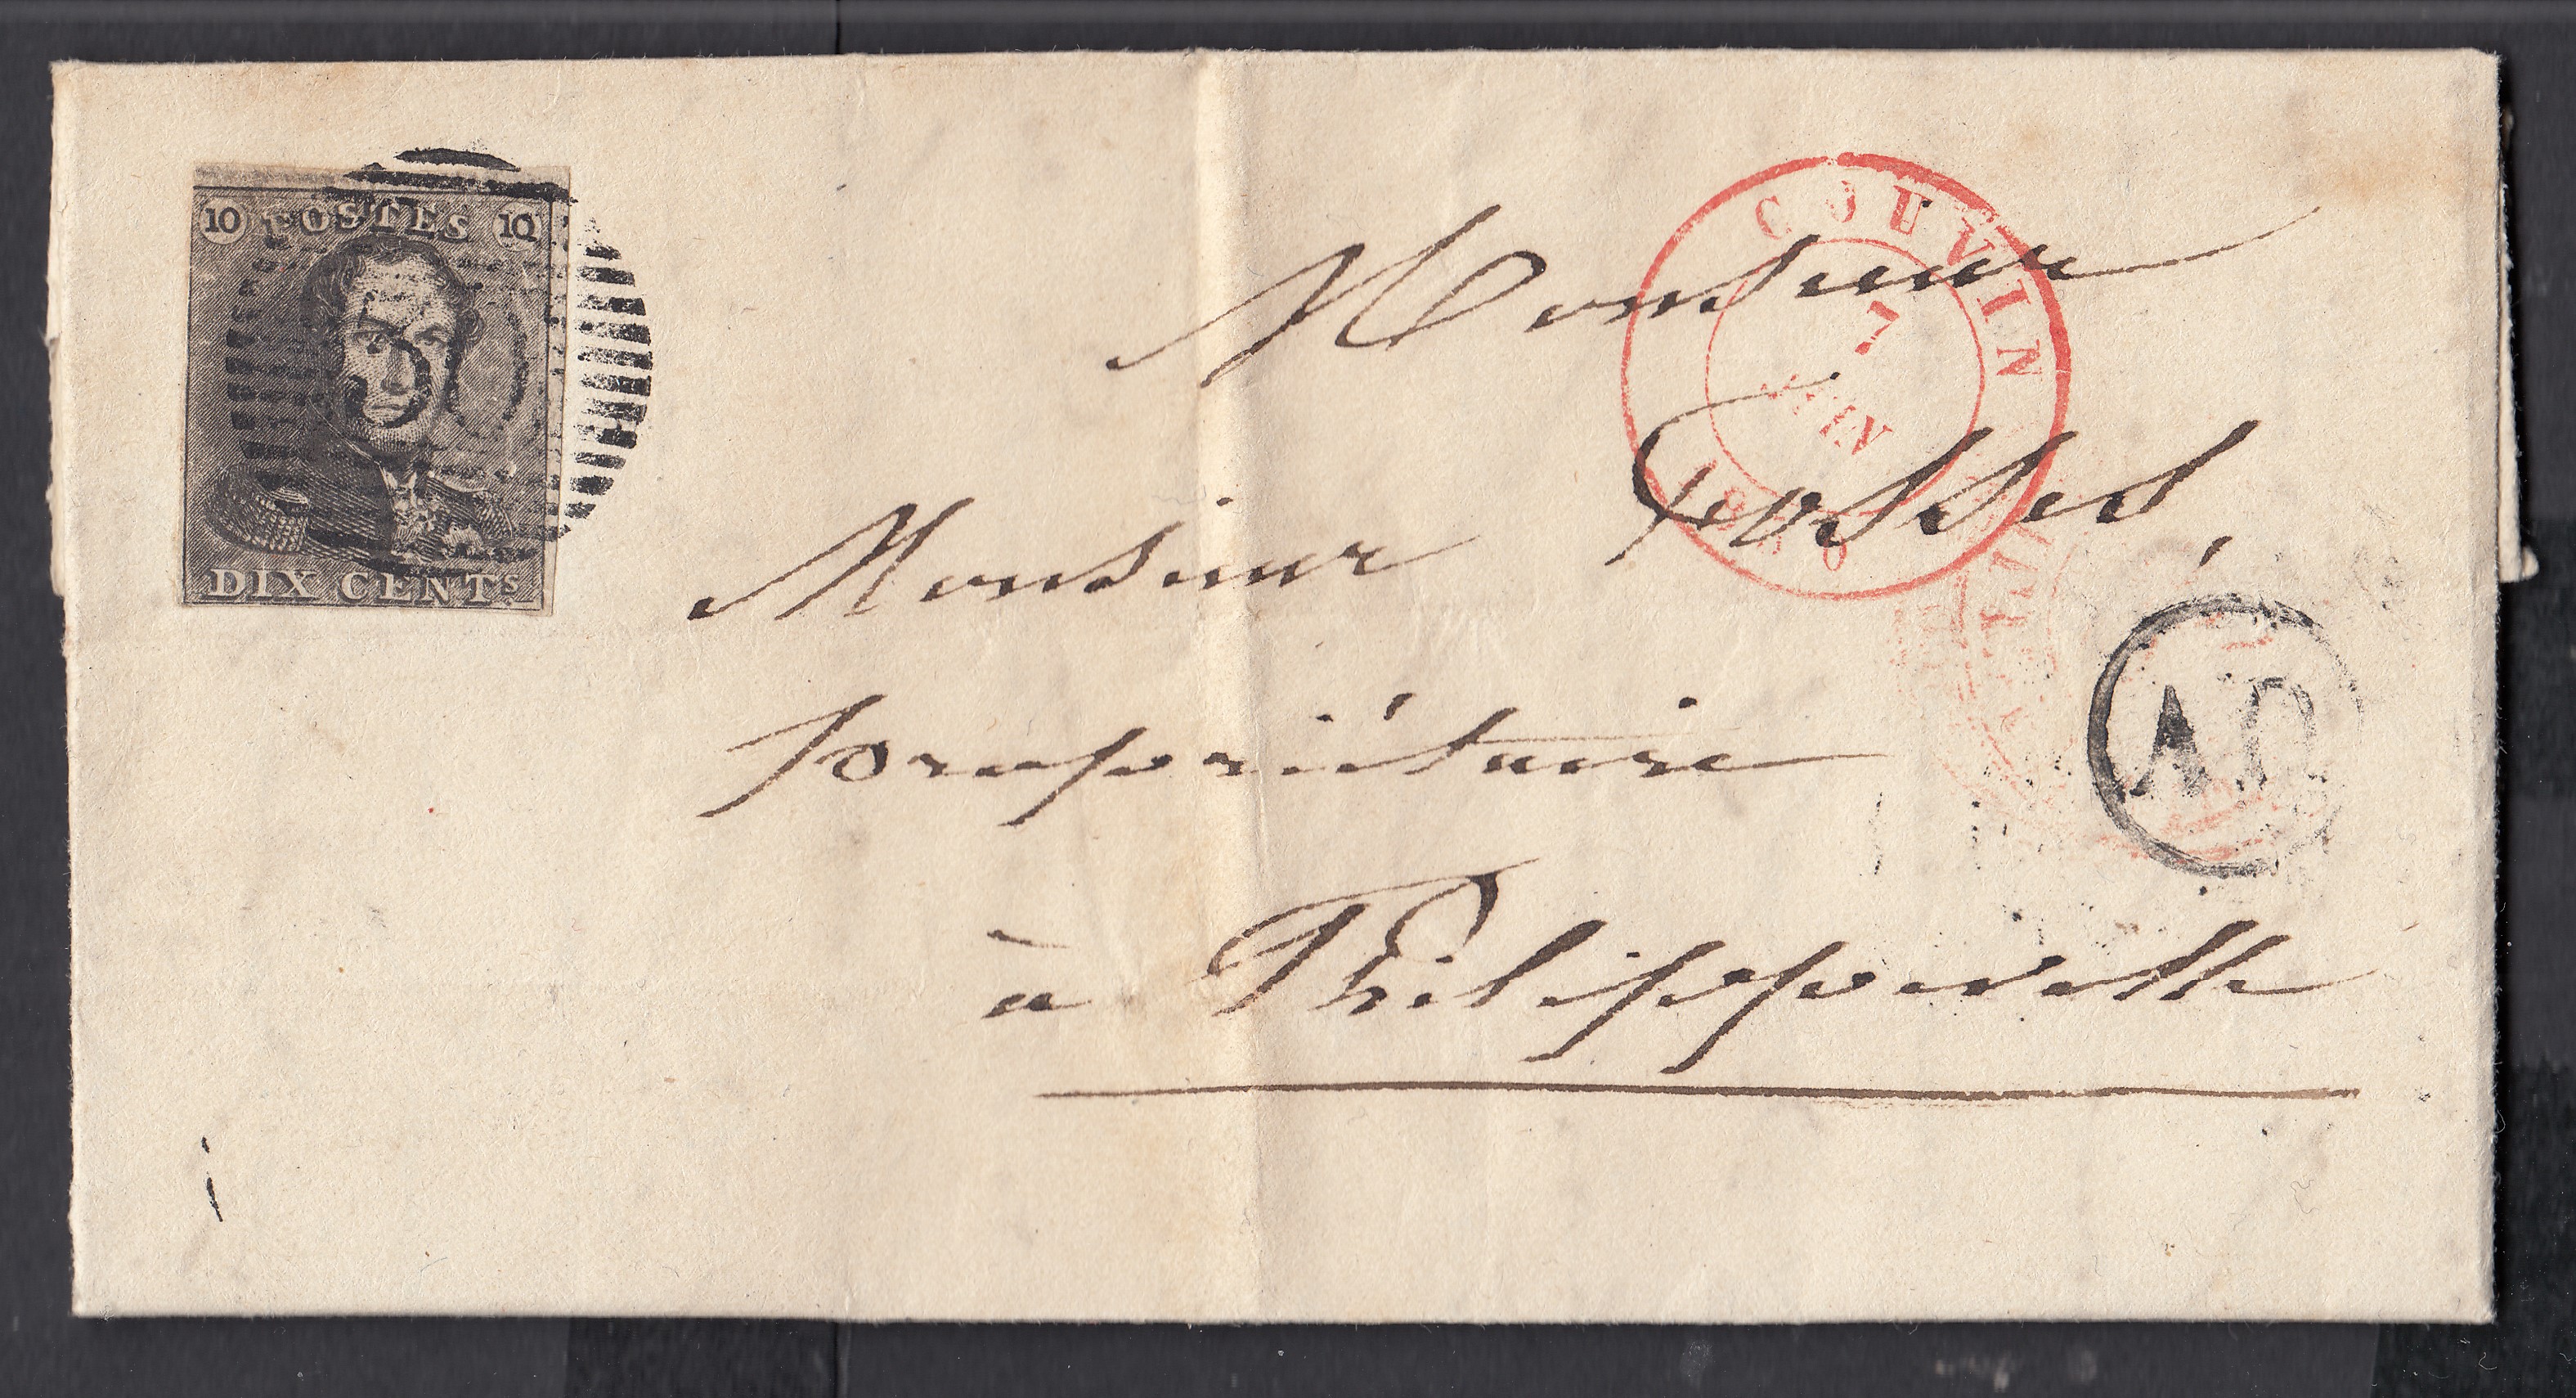 10 POSTES 10
DIX CENTS
COUVIN
7
JUIN
Monsieur
Monsieur
propriétaire
à Philippeville